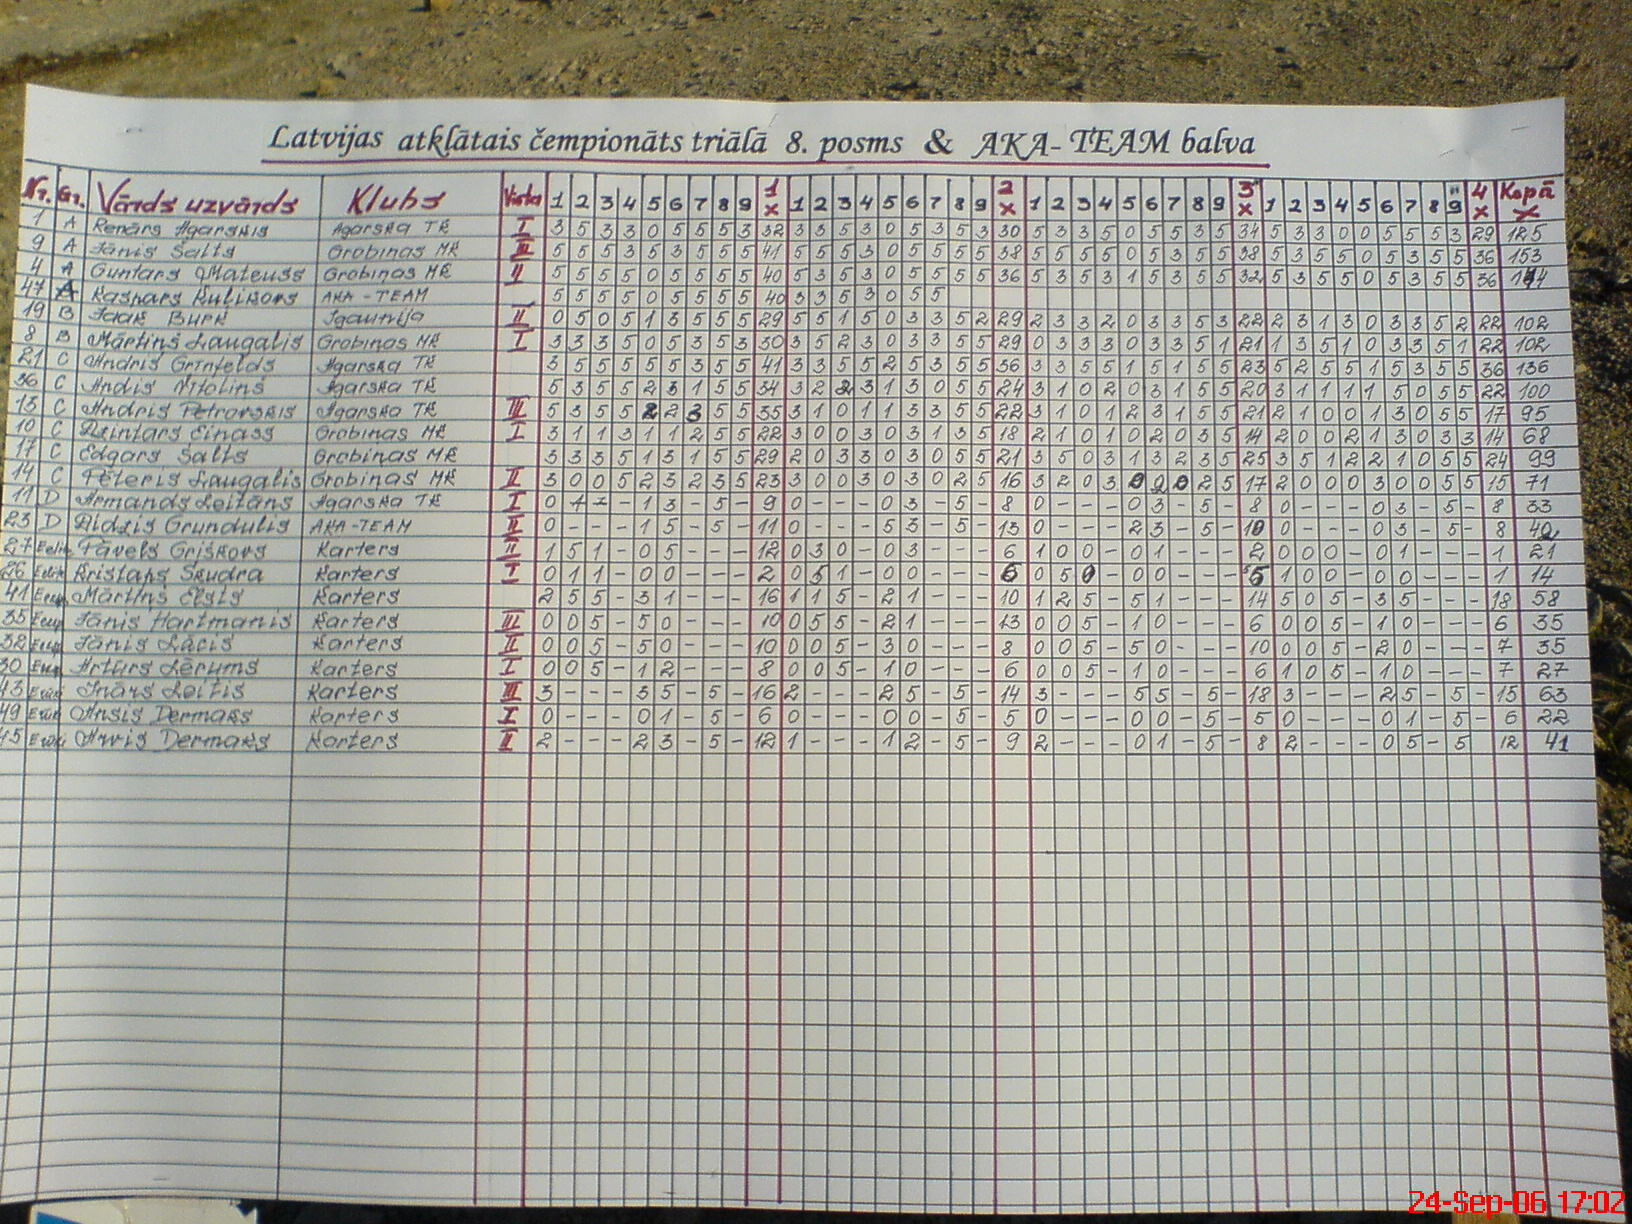 Latvijas atklātais čempionāts triālā 8. posms & AKA-TEAM balva
Nr. Gr. Vārds uzvārds Klubs Vieta 1 2 3 4 5 6 7 8 9 1x 1 2 3 4 5 6 7 8 9 2x 1 2 3 4 5 6 7 8 9 3x 1 2 3 4 5 6 7 8 9 4x Kopā x
1 A Renārs Agarskis Agarska TK I 3 5 3 3 0 5 5 5 3 32 3 3 5 3 0 5 3 5 3 30 5 3 3 5 0 5 5 3 5 34 5 3 3 0 0 5 5 5 3 29 125
9 A Jānis Šalts Grobiņas MK III 5 5 5 3 5 3 5 5 5 41 5 5 5 3 0 5 5 5 5 38 5 5 5 5 0 5 3 5 5 38 5 3 5 5 0 5 3 5 5 36 153
4 A Guntars Mateuss Grobiņas MK II 5 5 5 5 0 5 5 5 5 40 5 3 5 3 0 5 5 5 5 36 5 3 5 3 1 5 3 5 5 32 5 3 5 5 0 5 3 5 5 36
47 A Kaspars Kuļikovs AKA-TEAM 5 5 5 5 0 5 5 5 5 40 3 3 5 3 0 5 5
19 B Jaak Burk Igaunija II 0 5 0 5 1 3 5 5 5 29 5 5 1 5 0 3 3 5 2 29 2 3 3 2 0 3 3 5 3 22 2 3 1 3 0 3 3 5 2 22 102
8 B Mārtiņš Laugalis Grobiņas MK I 3 3 3 5 0 5 3 5 3 30 3 5 2 3 0 3 3 5 5 29 0 3 3 3 0 3 3 5 1 21 1 3 5 1 0 3 3 5 1 22 102
21 C Andris Grīnfelds Agarska TK 3 5 5 5 5 5 3 5 5 41 3 3 5 5 2 5 3 5 5 36 3 3 5 5 1 5 1 5 5 23 5 2 5 5 1 5 3 5 5 36 136
36 C Andis Nītoliņš Agarska TK 5 3 5 5 2 3 1 5 5 34 3 2 2 3 1 3 0 5 5 24 3 1 0 2 0 3 1 5 5 20 3 1 1 1 1 5 0 5 5 22 100
13 C Andris Petrovskis Agarska TK III 5 3 5 5 2 2 3 5 5 35 3 1 0 1 1 3 3 5 5 22 3 1 0 1 2 3 1 5 5 21 2 1 0 0 1 3 0 5 5 17 95
10 C Dzintars Einass Grobiņas MK I 3 1 1 3 1 1 2 5 5 22 3 0 0 3 0 3 1 3 5 18 2 1 0 1 0 2 0 3 5 14 2 0 0 2 1 3 0 3 3 14 68
17 C Edgars Šalts Grobiņas MK 3 3 3 5 1 3 1 5 5 29 2 0 3 3 0 3 0 5 5 21 3 5 0 3 1 3 2 3 5 25 3 5 1 2 2 1 0 5 5 24 99
14 C Pēteris Laugalis Grobiņas MK II 3 0 0 5 2 3 2 3 5 23 3 0 0 3 0 3 0 2 5 16 3 2 0 3 0 2 0 2 5 17 2 0 0 0 3 0 0 5 5 15 71
11 D Armands Leitāns Agarska TK I 0 - - - 1 3 - 5 - 9 0 - - - 0 3 - 5 - 8 0 - - - 0 3 - 5 - 8 0 - - - 0 3 - 5 - 8 33
23 D Aidzis Grundulis AKA-TEAM II 0 - - - 1 5 - 5 - 11 0 - - - 5 3 - 5 - 13 0 - - - 2 3 - 5 - 10 0 - - - 0 3 - 5 - 8 42
27 Pāvels Griškovs Karters II 1 5 1 - 0 5 - - - 12 0 3 0 - 0 3 - - - 6 1 0 0 - 0 1 - - - 2 0 0 0 - 0 1 - - - 1 21
26 Kristaps Skudra Karters I 0 1 1 - 0 0 - - - 2 0 5 1 - 0 0 - - - 6 0 5 0 - 0 0 - - - 5 1 0 0 - 0 0 - - - 1 14
41 Mārtiņš Karters 2 5 5 - 3 1 - - - 16 1 1 5 - 2 1 - - - 10 1 2 5 - 5 1 - - - 14 5 0 5 - 3 5 - - - 18 58
35 Jānis Hartmanis Karters III 0 0 5 - 5 0 - - - 10 0 5 5 - 2 1 - - - 13 0 0 5 - 1 0 - - - 6 0 0 5 - 1 0 - - - 6 35
32 Jānis Lācis Karters II 0 0 5 - 5 0 - - - 10 0 0 5 - 3 0 - - - 8 0 0 5 - 5 0 - - - 10 0 0 5 - 2 0 - - - 7 35
30 Artūrs Lērums Karters I 0 0 5 - 1 2 - - - 8 0 0 5 - 1 0 - - - 6 0 0 5 - 1 0 - - - 6 1 0 5 - 1 0 - - - 7 27
43 Inārs Leitis Karters III 3 - - - 3 5 - 5 - 16 2 - - - 2 5 - 5 - 14 3 - - - 5 5 - 5 - 18 3 - - - 2 5 - 5 - 15 63
49 Ansis Dermaks Karters I 0 - - - 0 1 - 5 - 6 0 - - - 0 0 - 5 - 5 0 - - - 0 0 - 5 - 5 0 - - - 0 1 - 5 - 6 22
45 Arvis Dermaks Karters II 2 - - - 2 3 - 5 - 12 1 - - - 1 2 - 5 - 9 2 - - - 0 1 - 5 - 8 2 - - - 0 5 - 5 - 12 41
24-Sep-06 17:02